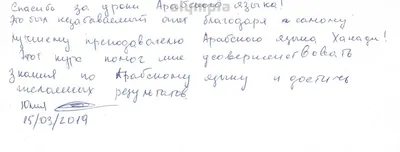 Спасибо за уроки Арабского языка!
Это был незабываемый опыт благодаря самому
лучшему преподавателю Арабского языка Ханади!
Этот курс помог мне усовершенствовать
знания по Арабскому языку и достичь
желаемых результатов.
Юлия
15/03/2019